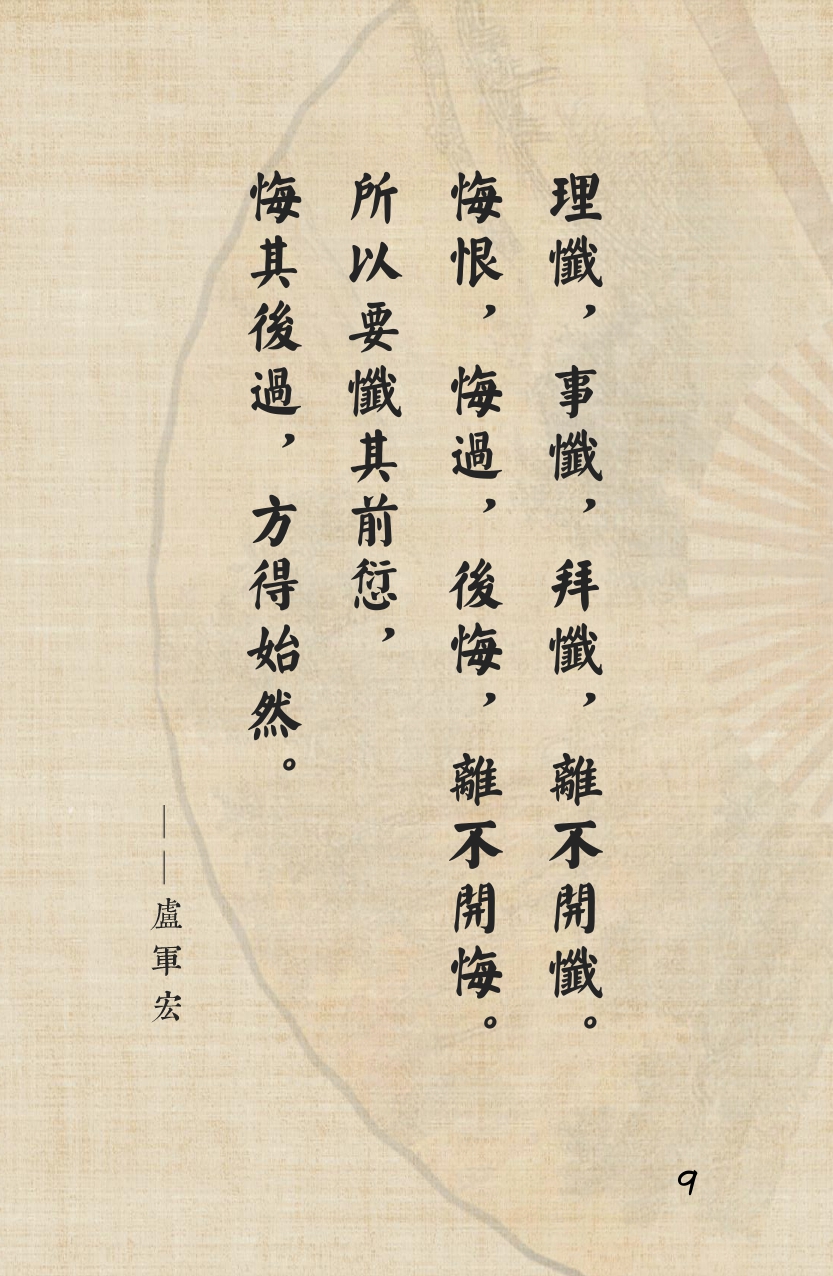 理懺，事懺，拜懺，離不開懺。
悔恨，悔過，後悔，離不開悔。
所以要懺其前愆，
悔其後過，方得始然。
——盧軍宏
9